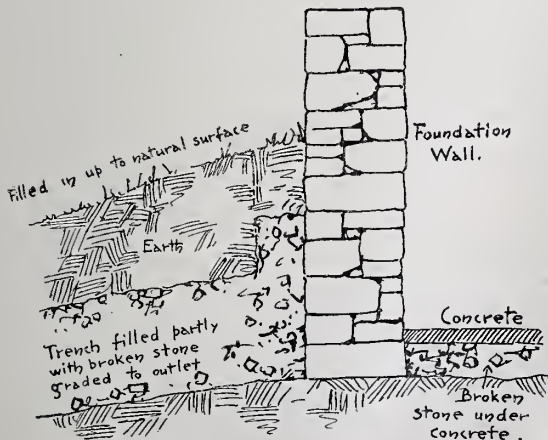 Filled in up to natural surface
Foundation
Wall.
Earth
Trench filled partly
with broken stone
graded to outlet
Concrete
Broken
stone under
concrete.